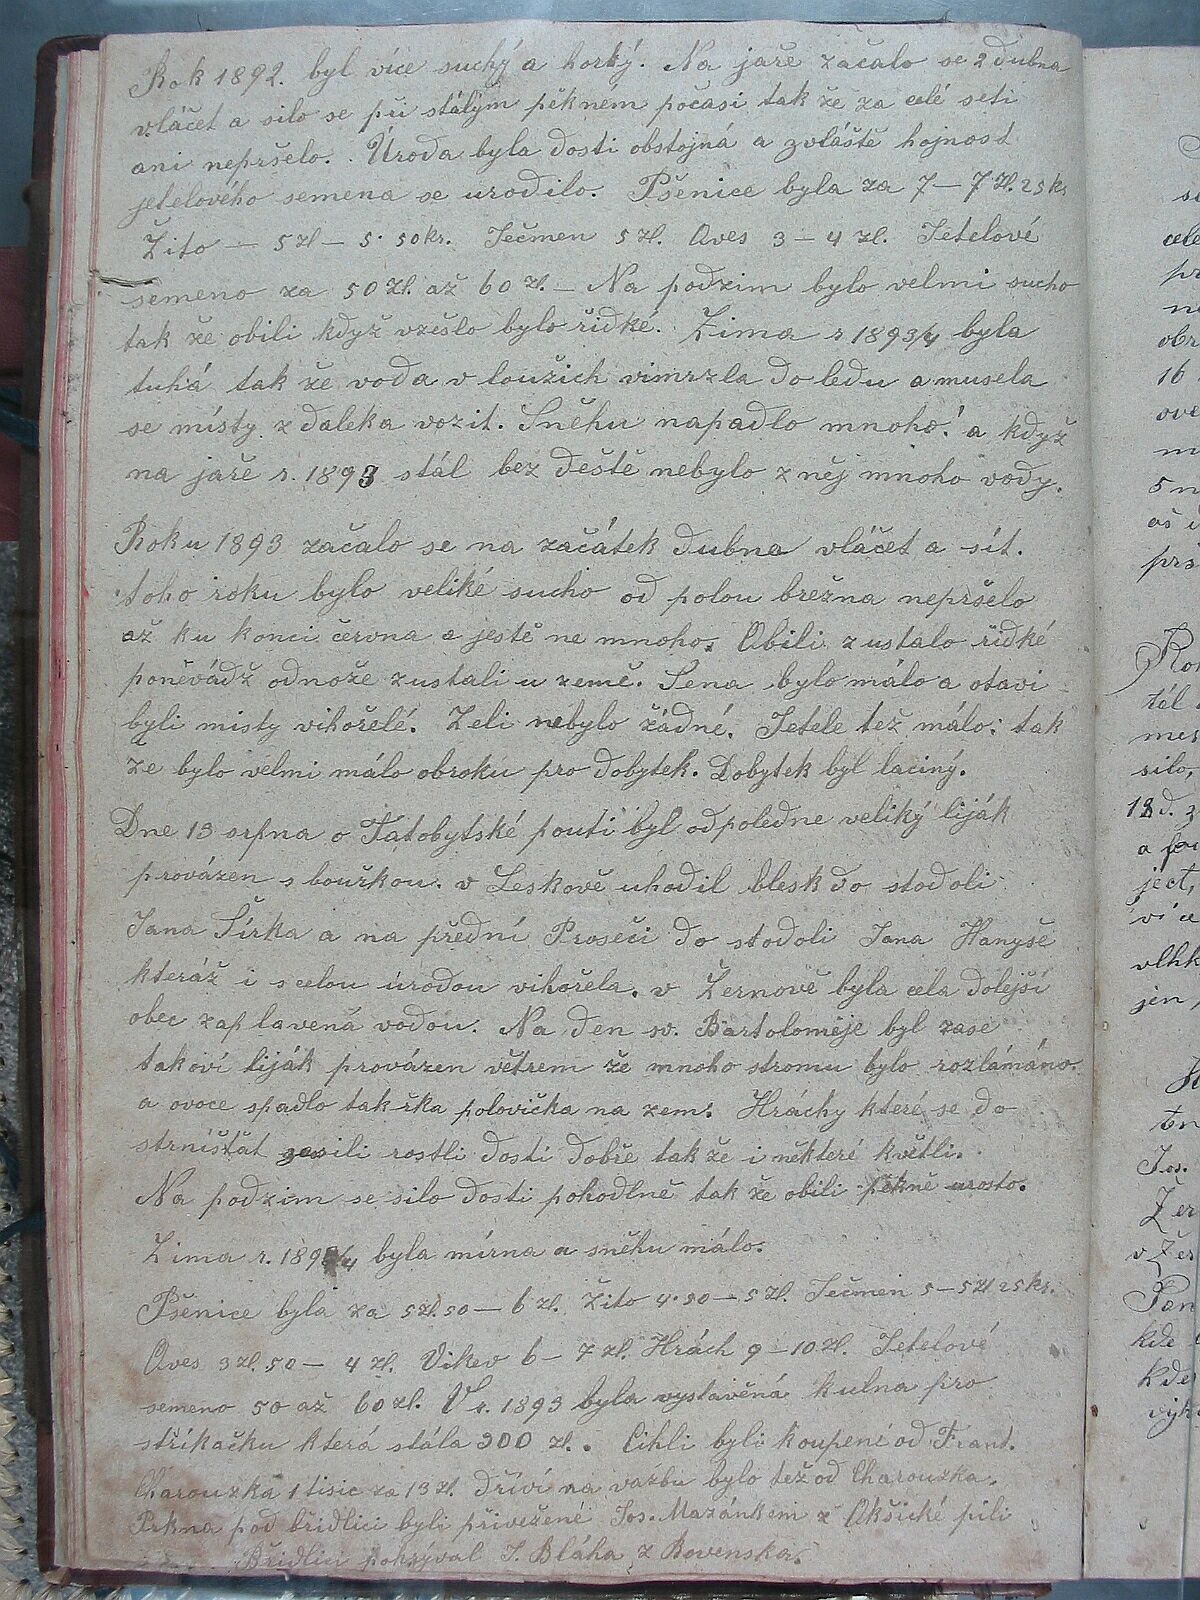 Rok 1892. byl více suchý a horký. Na jaře začalo se 2 dubna
vláčet a silo se při stálým pěkném počasi tak že za celé seti
ani nepršelo. Úroda byla dosti obstojná a zvláště hojnost
jetelového semena se urodilo. Pšenice byla za 7 – 7 Zl. 25 kr
Žito – 5 zl – 5· 50 kr. Ječmen 5 zl. Oves 3 – 4 zl. Jetelové
semeno za 50 zl. až 60 zl. – Na podzim bylo velmi sucho
tak že obili když vzešlo bylo řidké. Zima r 1893/4 byla
tuhá tak že voda v loužich vimrzla do ledu a musela
se místy z daleka vozit. Sněhu napadlo mnoho! a když
na jaře r. 1893 stál bez deště nebylo z něj mnoho vody.
Roku 1893 začalo se na začátek dubna vláčet a sít.
toho roku bylo veliké sucho od polou března nepršelo
až ku konci června a jestě ne mnoho. Obili zustalo řidké
poněvádž odnože zustali u země. Sena bylo málo a otavi
byli misty vihořelé. Zeli nebylo žádné. Jetele též málo: tak
že bylo velmi málo obroku pro dobytek. Dobytek byl laciný.
Dne 13 srpna o Tatobytské pouti byl odpoledne veliký liják
provázen s bouřkou. v Leskově uhodil blesk do stodoli
Jana Šírka a na přední Proseči do stodoli Jana Hanyše
kteráž i s celou úrodou vihořela. v Žernově byla cela dolejší
obec zaplavená vodou. Na den sv. Bartoloměje byl zase
takoví liják provázen větrem že mnoho stromu bylo rozlámáno
a ovoce spadlo tak řka polovička na zem. Hráchy které se do
strništat zasili rostli dosti dobře tak že i některé květli.
Na podzim se silo dosti pohodlně tak že obili pěkně urosto.
Zima r. 1893/4 byla mírna a sněhu málo.
Pšenice byla za 5 zl. 50 – 6 zl. Žito 4·50 – 5 zl. Ječmen 5 – 5 zl 25 kr.
Oves 3 zl. 50 – 4 zl. Vikev 6 – 7 zl. Hrách 9 – 10 zl. Jetelové
semeno 50 až 60 zl. V r. 1893 byla vystavěná kulna pro
stříkačku která stála 300 zl. Cihli byli koupené od Frant.
Charouzka 1 tisic za 13 zl. dříví na vazbu bylo též od Charouzka.
Prkna pod břidlici byli přivežené Jos. Mazánkem z Okšické pili
Břidlici pokrýval J. Bláha z Rovenska.